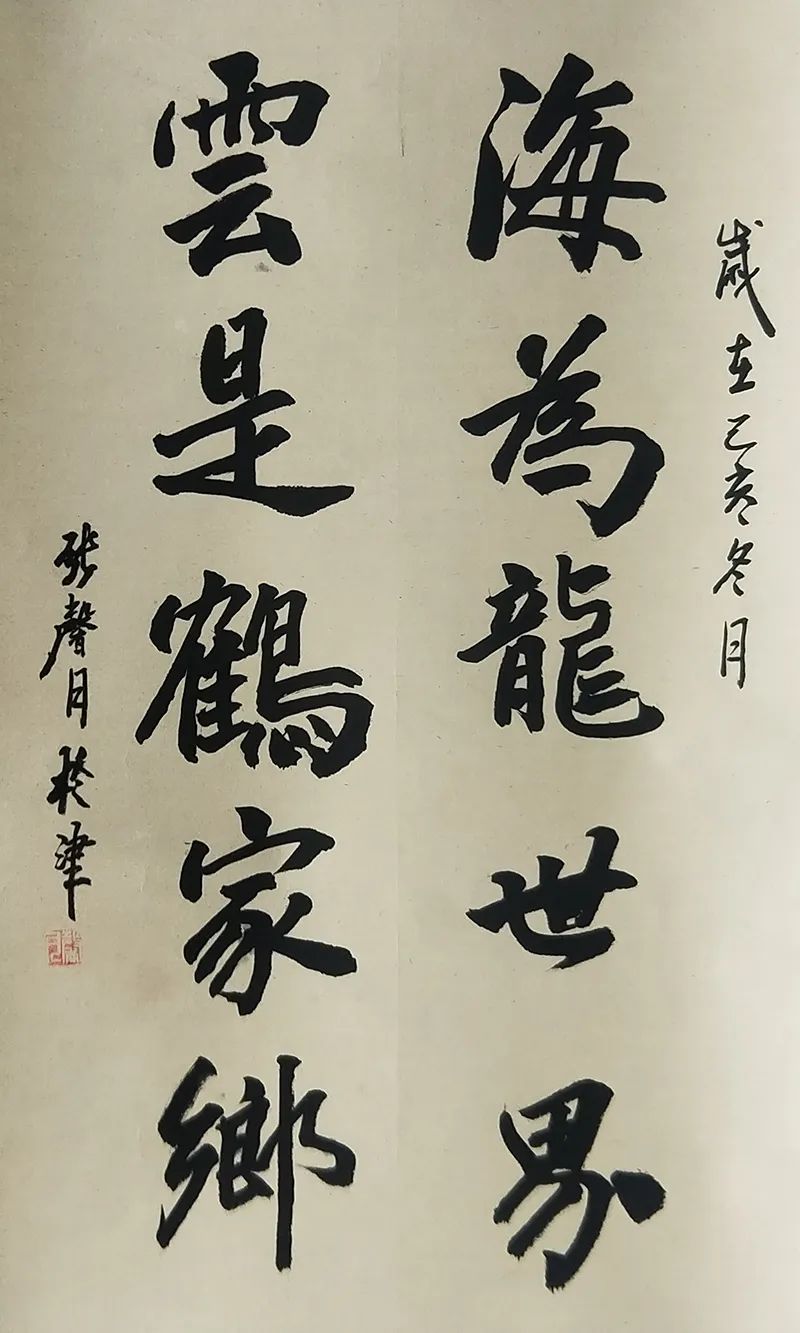 歲在己亥冬月
海為龍世界
雲是鶴家鄉
張馨月於津